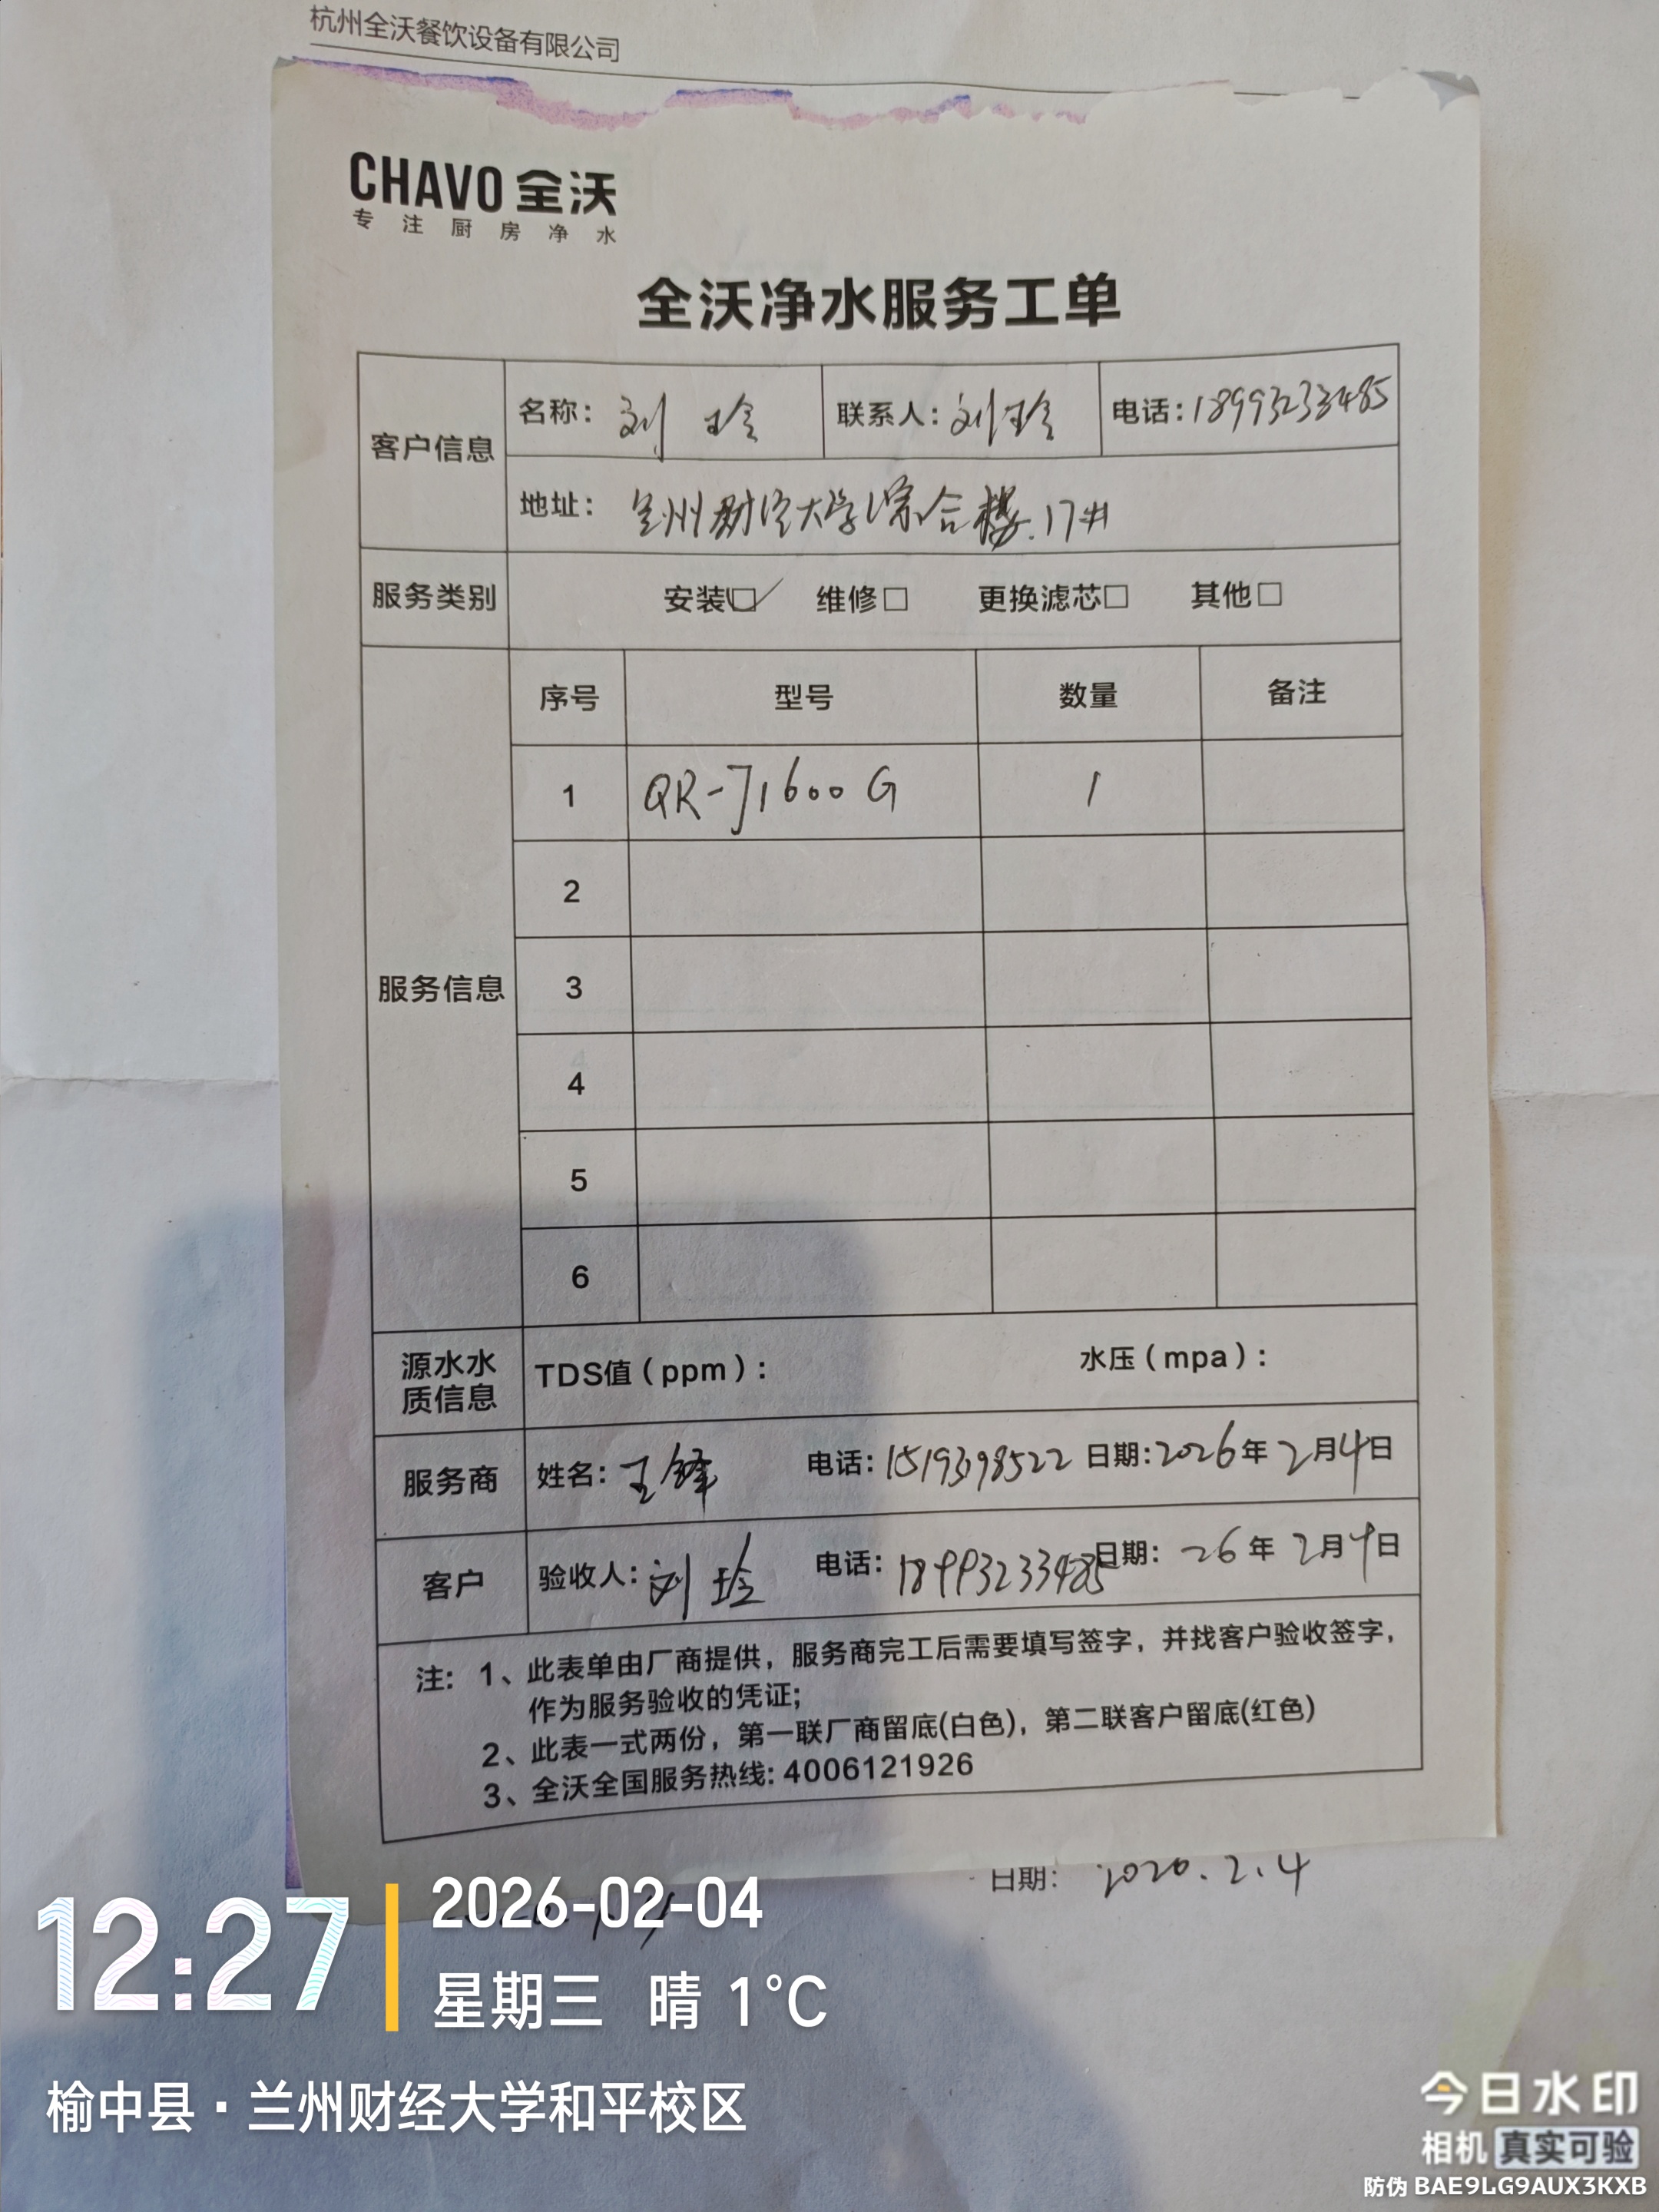 杭州全沃餐饮设备有限公司
CHAVO 全沃
专注厨房净水
全沃净水服务工单
客户信息 名称: 刘玲 联系人: 刘玲 电话: 18993233485
地址: 兰州财经大学综合楼.17#
服务类别 安装☑ 维修□ 更换滤芯□ 其他□
服务信息 序号 型号 数量 备注
1 QR-J1600G 1
2
3
4
5
6
源水水质信息 TDS值(ppm): 水压(mpa):
服务商 姓名: 王锋 电话: 15193198522 日期: 2026年2月4日
客户 验收人: 刘玲 电话: 18993233485 日期: 26年2月4日
注: 1、此表单由厂商提供, 服务商完工后需要填写签字, 并找客户验收签字,
作为服务验收的凭证;
2、此表一式两份, 第一联厂商留底(白色), 第二联客户留底(红色)
3、全沃全国服务热线: 4006121926
日期: 2020.2.4
12:27
2026-02-04
星期三 晴 1°C
榆中县·兰州财经大学和平校区
今日水印
相机 真实可验
防伪 BAE9LG9AUX3KXB